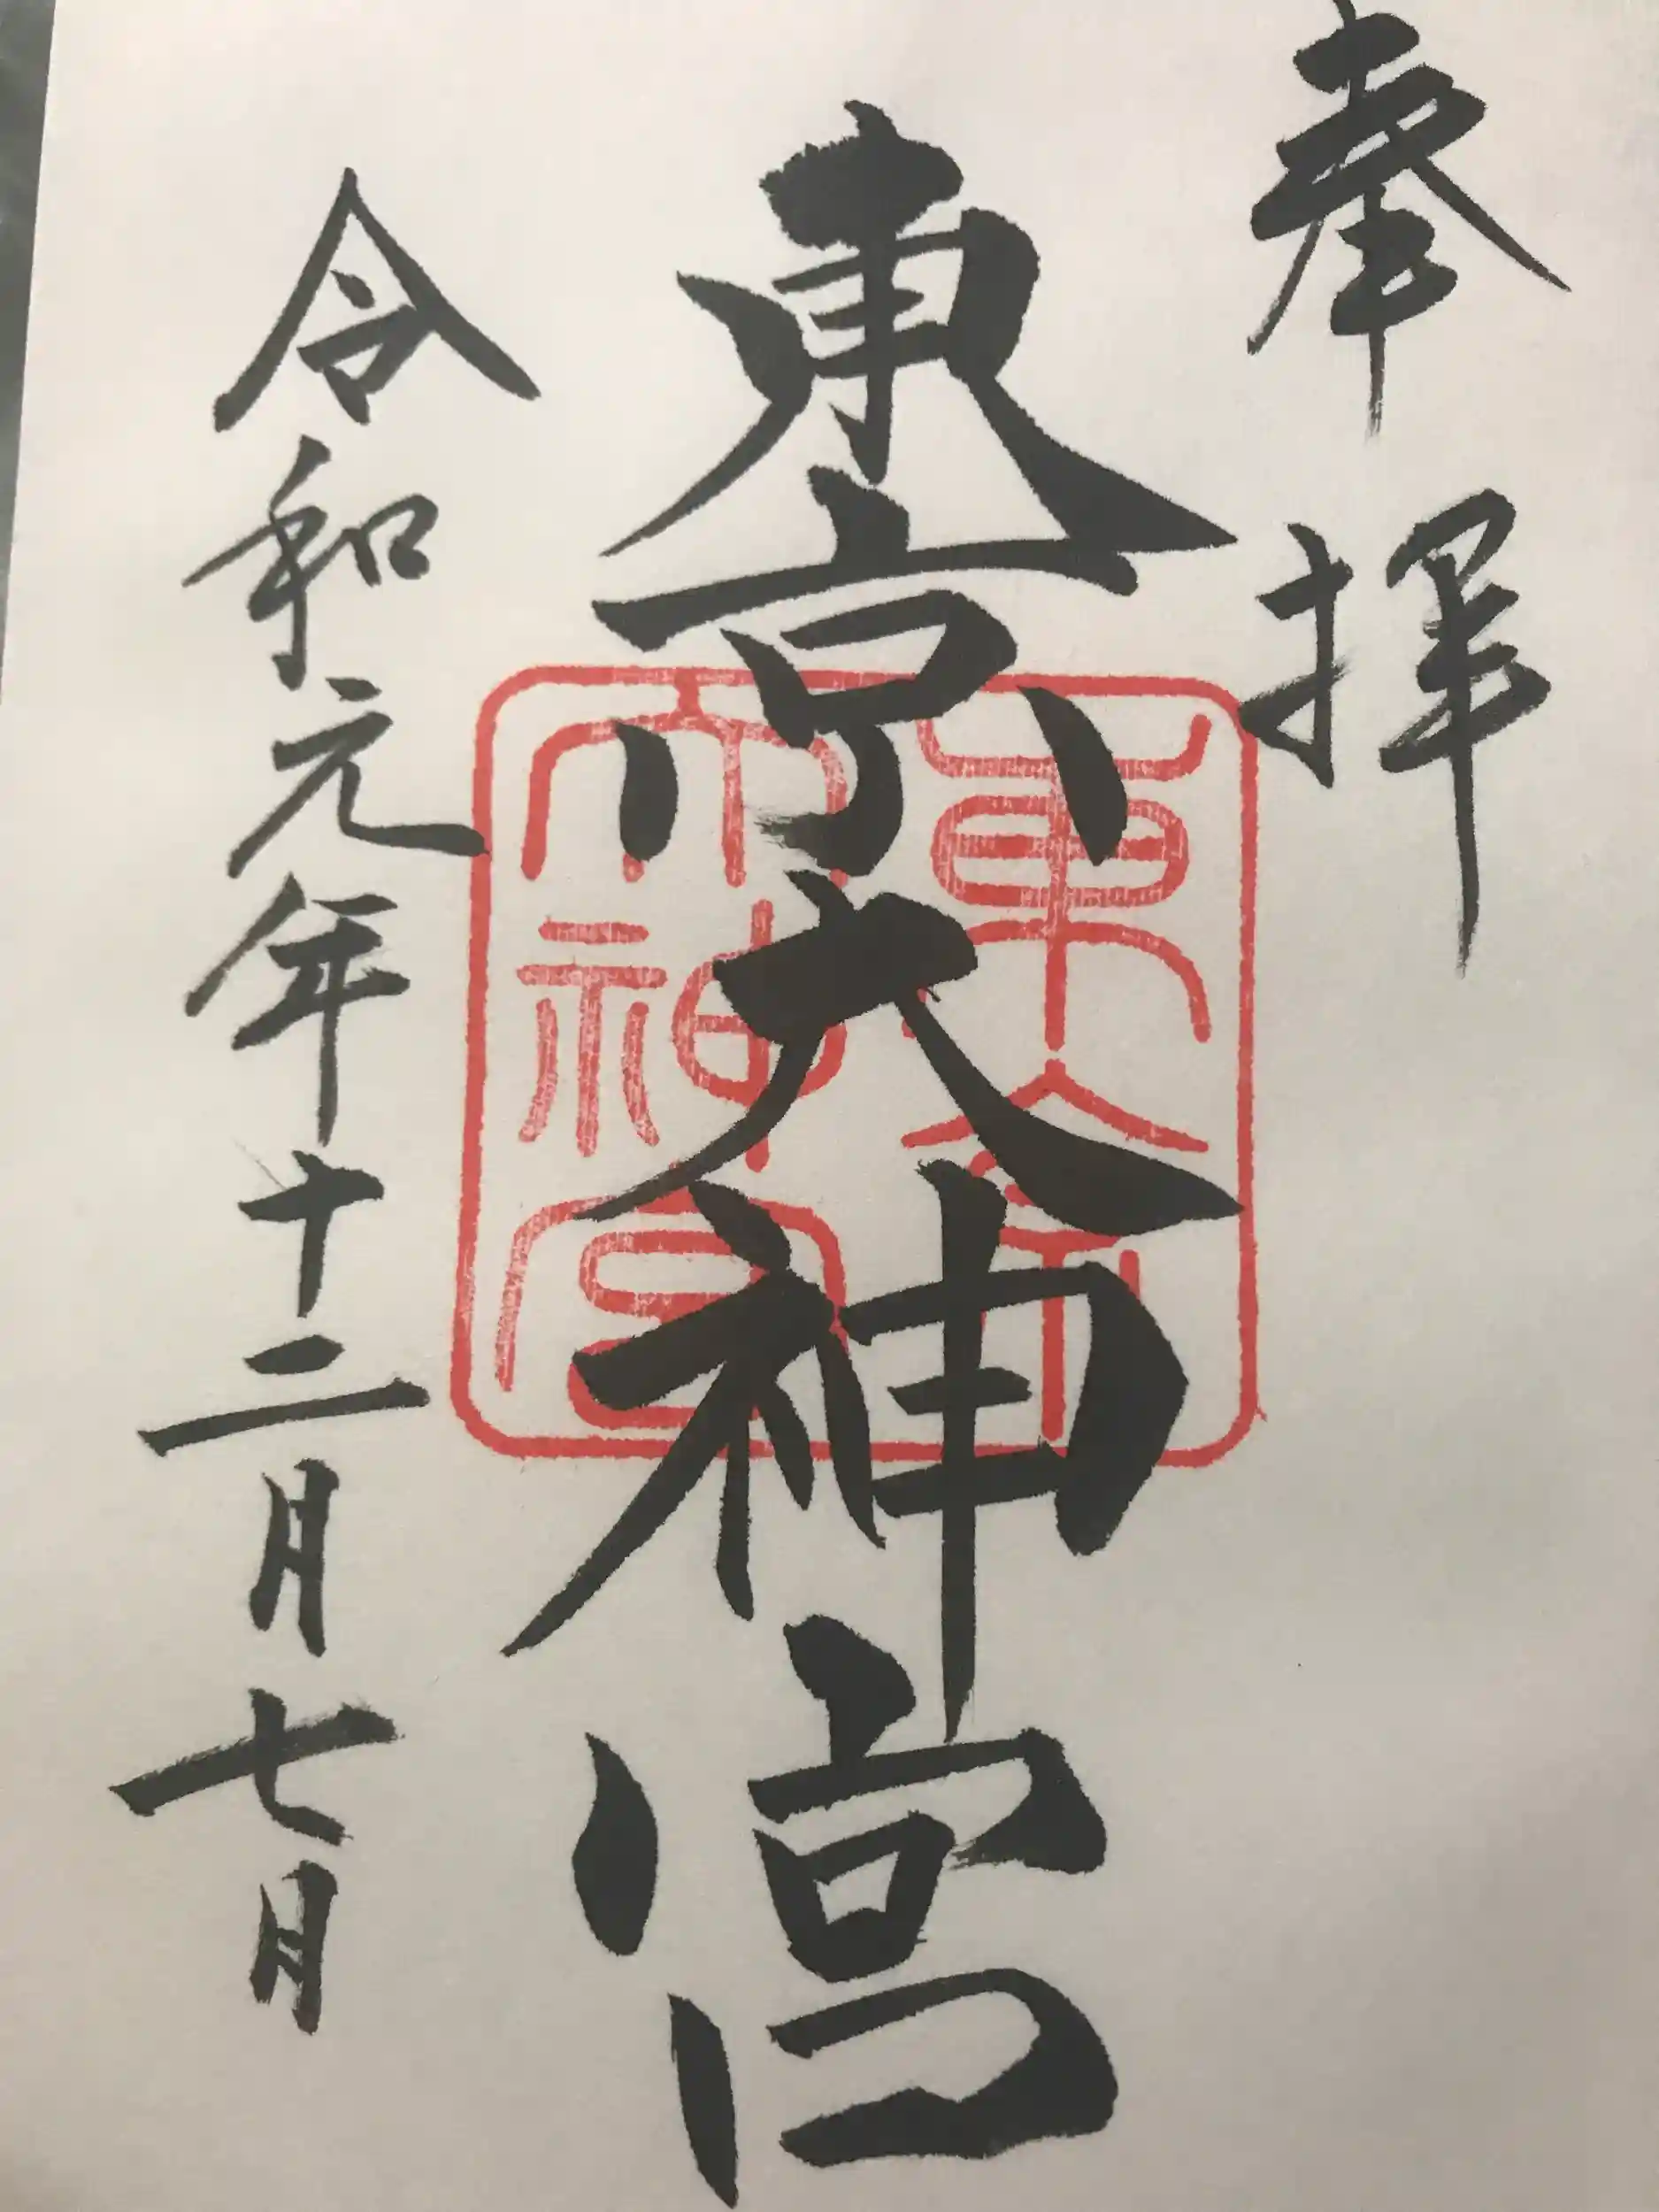 奉拝
東京大神宮
令和元年十二月七日
東京
大神宮